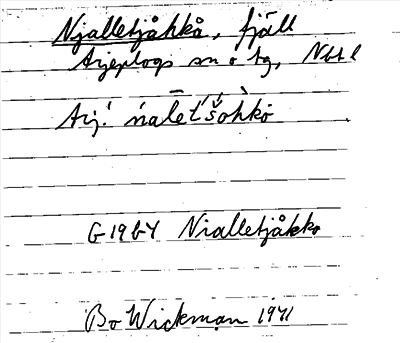 Njalletjåkkå, fjäll
Arjeplogs sn o tg, Nbt l
Arj. ńālet́t́šohkò
G 19 b-Y Nialletjåkko
Bo Wickman 1971